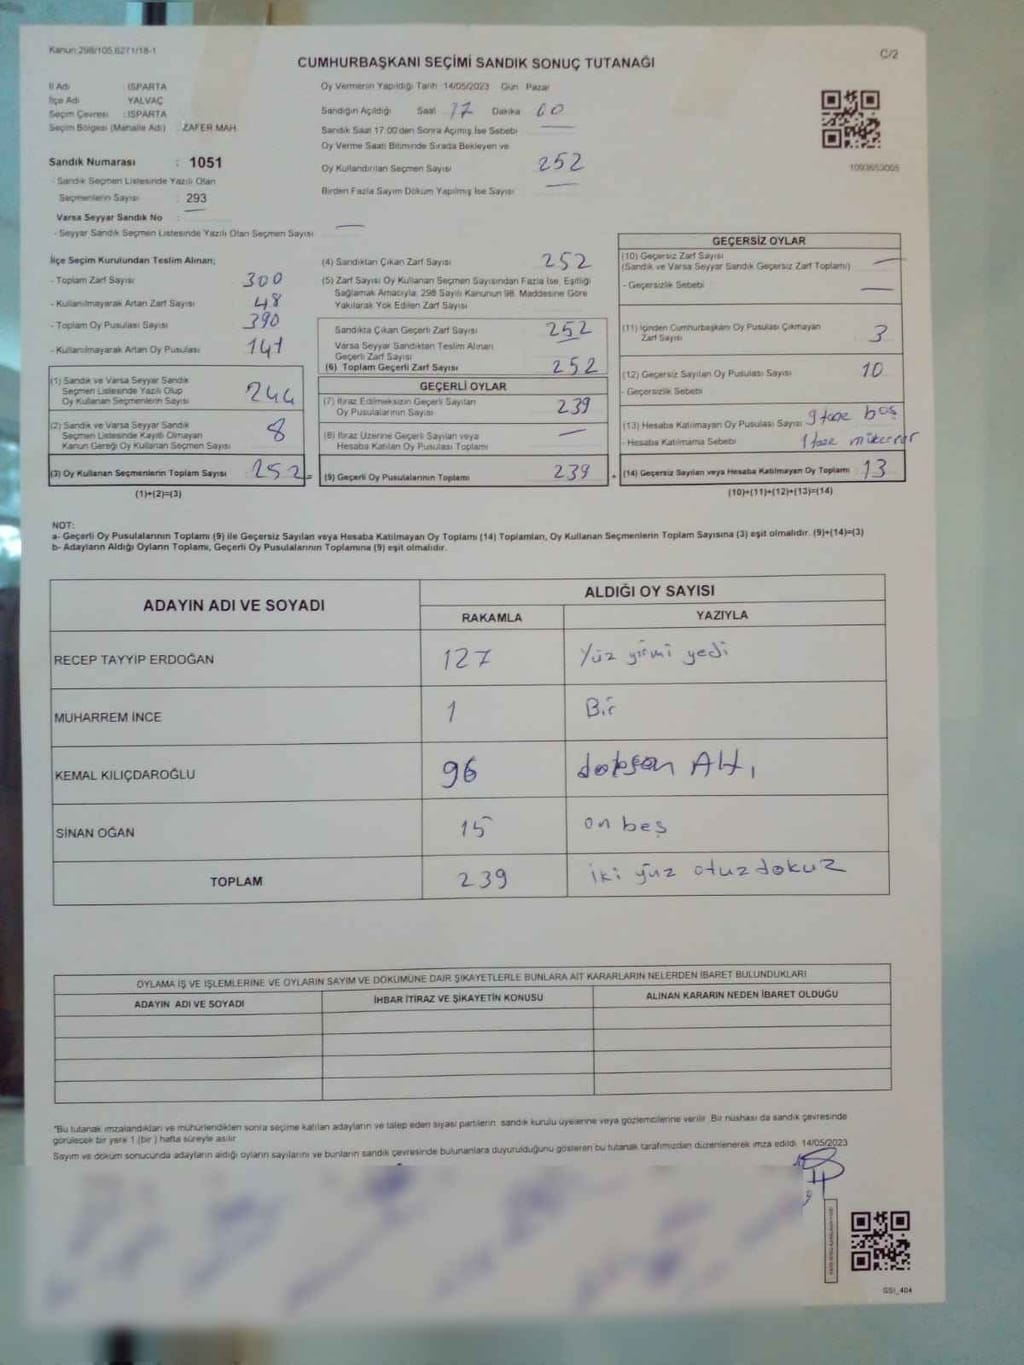 Kanun:298/105,6271/18-1
C/2
CUMHURBAŞKANI SEÇİMİ SANDIK SONUÇ TUTANAĞI
İl Adı ISPARTA
İlçe Adı YALVAÇ
Seçim Çevresi : ISPARTA
Seçim Bölgesi (Mahalle Adı) : ZAFER MAH.
Sandık Numarası : 1051
- Sandık Seçmen Listesinde Yazılı Olan
Seçmenlerin Sayısı : 293
Varsa Seyyar Sandık No :
- Seyyar Sandık Seçmen Listesinde Yazılı Olan Seçmen Sayısı
Oy Vermenin Yapıldığı Tarih 14/05/2023 Gün Pazar
Sandığın Açıldığı Saat 17 Dakika 00
Sandık Saat 17:00'den Sonra Açılmış İse Sebebi
Oy Verme Saati Bitiminde Sırada Bekleyen ve
Oy Kullandırılan Seçmen Sayısı 252
Birden Fazla Sayım Döküm Yapılmış İse Sayısı
1093653005
İlçe Seçim Kurulundan Teslim Alınan;
- Toplam Zarf Sayısı 300
- Kullanılmayarak Artan Zarf Sayısı 48
- Toplam Oy Pusulası Sayısı 390
- Kullanılmayarak Artan Oy Pusulası 141
(1) Sandık ve Varsa Seyyar Sandık
Seçmen Listesinde Yazılı Olup
Oy Kullanan Seçmenlerin Sayısı 244
(2) Sandık ve Varsa Seyyar Sandık
Seçmen Listesinde Kayıtlı Olmayan
Kanun Gereği Oy Kullanan Seçmen Sayısı 8
(3) Oy Kullanan Seçmenlerin Toplam Sayısı 252 =
(1)+(2)=(3)
(4) Sandıktan Çıkan Zarf Sayısı 252
(5) Zarf Sayısı Oy Kullanan Seçmen Sayısından Fazla İse, Eşitliği
Sağlamak Amacıyla; 298 Sayılı Kanunun 98. Maddesine Göre
Yakılarak Yok Edilen Zarf Sayısı
Sandıkta Çıkan Geçerli Zarf Sayısı 252
Varsa Seyyar Sandıktan Teslim Alınan
Geçerli Zarf Sayısı
(6) Toplam Geçerli Zarf Sayısı 252
GEÇERLİ OYLAR
(7) İtiraz Edilmeksizin Geçerli Sayılan
Oy Pusulalarının Sayısı 239
(8) İtiraz Üzerine Geçerli Sayılan veya
Hesaba Katılan Oy Pusulası Toplamı
(9) Geçerli Oy Pusulalarının Toplamı 239 +
GEÇERSİZ OYLAR
(10) Geçersiz Zarf Sayısı
(Sandık ve Varsa Seyyar Sandık Geçersiz Zarf Toplamı)
- Geçersizlik Sebebi
(11) İçinden Cumhurbaşkanı Oy Pusulası Çıkmayan
Zarf Sayısı 3
(12) Geçersiz Sayılan Oy Pusulası Sayısı 10
- Geçersizlik Sebebi
(13) Hesaba Katılmayan Oy Pusulası Sayısı 9 tane boş
- Hesaba Katılmama Sebebi 1 tane mükerrer
(14) Geçersiz Sayılan veya Hesaba Katılmayan Oy Toplamı 13
(10)+(11)+(12)+(13)=(14)
NOT:
a- Geçerli Oy Pusulalarının Toplamı (9) ile Geçersiz Sayılan veya Hesaba Katılmayan Oy Toplamı (14) Toplamları, Oy Kullanan Seçmenlerin Toplam Sayısına (3) eşit olmalıdır. (9)+(14)=(3)
b- Adayların Aldığı Oyların Toplamı, Geçerli Oy Pusulalarının Toplamına (9) eşit olmalıdır.
ADAYIN ADI VE SOYADI
ALDIĞI OY SAYISI
RAKAMLA YAZIYLA
RECEP TAYYİP ERDOĞAN 127 Yüz yirmi yedi
MUHARREM İNCE 1 Bir
KEMAL KILIÇDAROĞLU 96 doksan Altı
SİNAN OĞAN 15 on beş
TOPLAM 239 iki yüz otuzdokuz
OYLAMA İŞ VE İŞLEMLERİNE VE OYLARIN SAYIM VE DÖKÜMÜNE DAİR ŞİKAYETLERLE BUNLARA AİT KARARLARIN NELERDEN İBARET BULUNDUKLARI
ADAYIN ADI VE SOYADI İHBAR İTİRAZ VE ŞİKAYETİN KONUSU ALINAN KARARIN NEDEN İBARET OLDUĞU
"Bu tutanak imzalandıktan ve mühürlendikten sonra seçime katılan adayların ve talep eden siyasi partilerin sandık kurulu üyelerine veya gözlemcilerine verilir. Bir nüshası da sandık çevresinde
görülecek bir yere 1 (bir) hafta süreyle asılır.
Sayım ve döküm sonucunda adayların aldığı oyların sayılarını ve bunların sandık çevresinde bulunanlara duyurulduğunu gösteren bu tutanak tarafımızdan düzenlenerek imza edildi. 14/05/2023
GSI_404